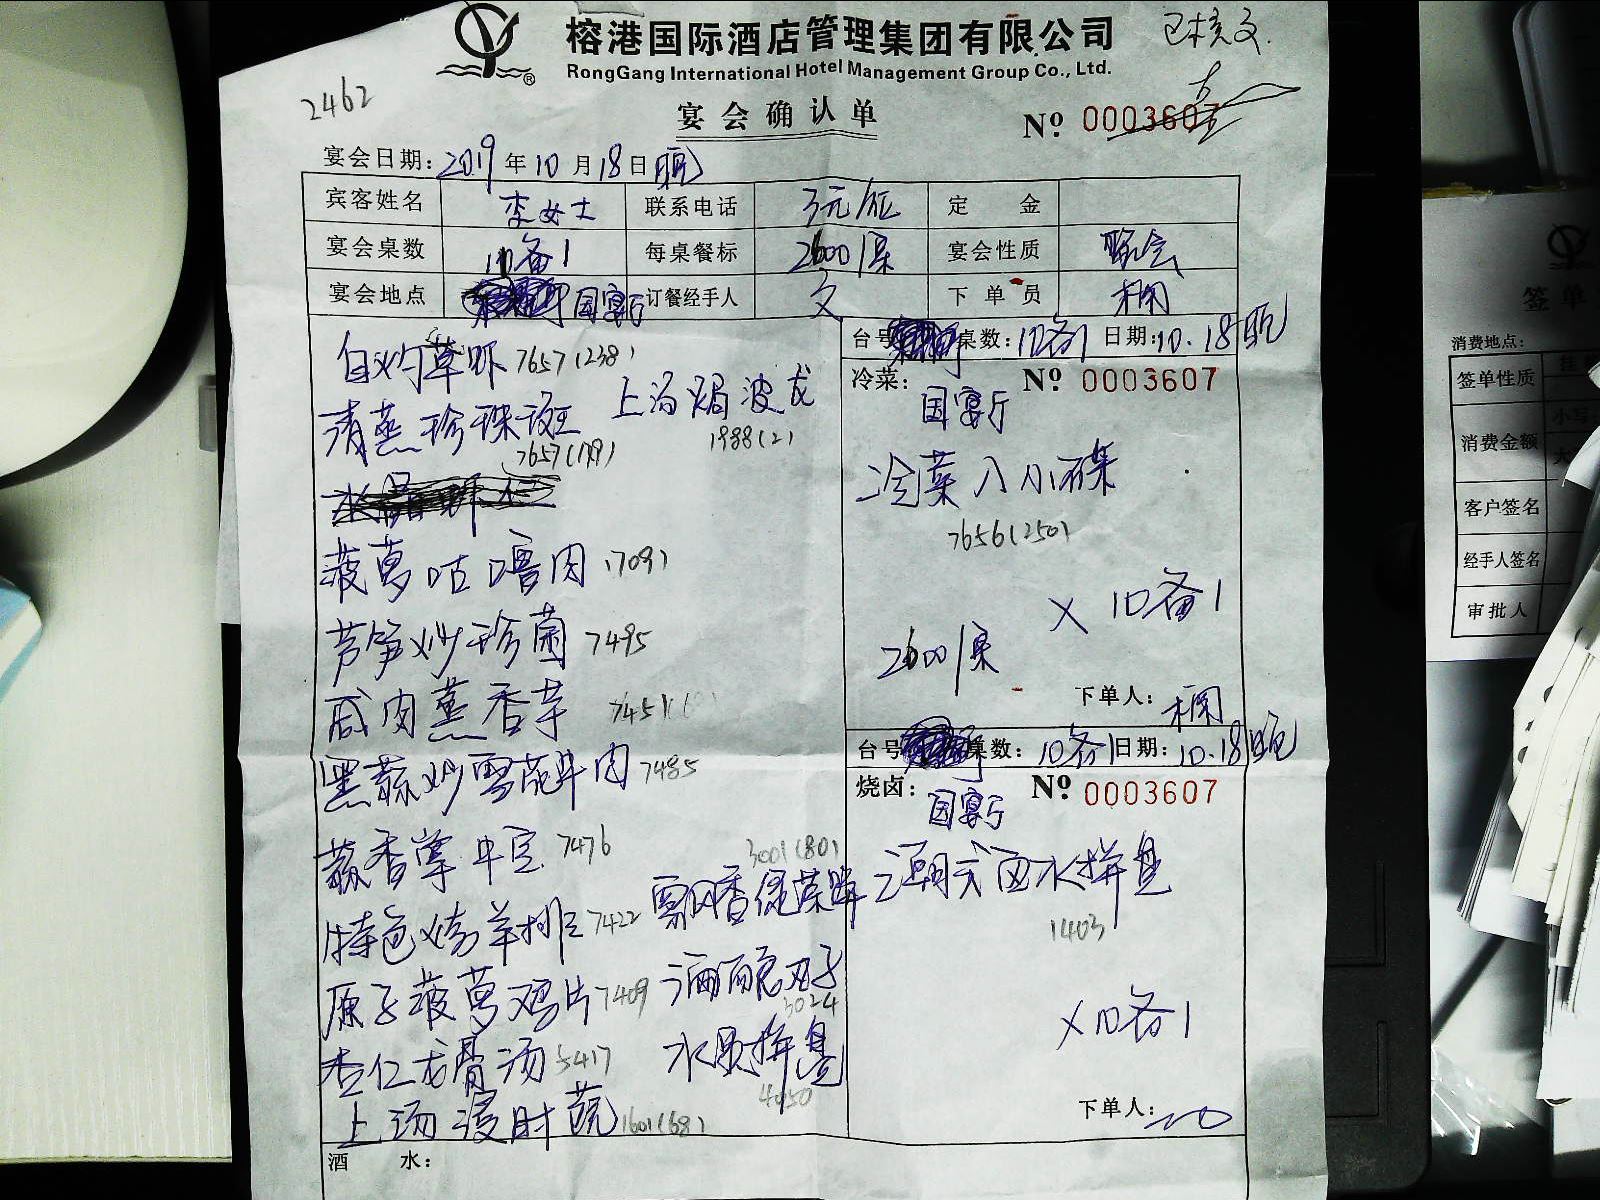 榕港国际酒店管理集团有限公司
RongGang International Hotel Management Group Co., Ltd.
®
2462
宴会确认单
№ 0003607
宴会日期：2019年10月18日晚
宾客姓名 李女士 联系电话 定金
宴会桌数 10备1 每桌餐标 2600/桌 宴会性质 晚会
宴会地点 国宴厅 订餐经手人 文 下单员
白灼草虾 7657(238)
清蒸珍珠斑 7657(179)
上汤焗波龙 1988(2)
菠萝咕噜肉 (709)
芦笋炒珍菌 7495
咸肉蒸香芋 7451
黑蒜炒雪花牛肉 7485
蒜香掌中宝 7476
特色烤羊排 7422
原子菠萝鸡片 7409
杏仁龙骨汤 5417
上汤浸时蔬 1601(68)
飘香绿茶饼 3001(80)
3024
水果拼盘 4050
台号 桌数：10备1 日期：10.18晚
冷菜： № 0003607
国宴厅
冷菜八小碟
7656(250)
× 10备1
2600/桌
下单人：
台号 桌数：10备1 日期：10.18晚
烧卤： № 0003607
国宴厅
潮式卤水拼盘
1403
×10备1
下单人：
酒水：
签单
消费地点：
签单性质
消费金额
小写
大
客户签名
经手人签名
审批人